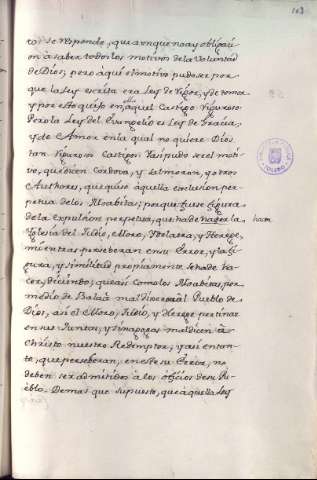 103
to se responde, que aunque no ay obligaci-
on à saber todos los motivos de la Voluntad
de Dios; pero àqui el motivo pudo ser por
que la Ley escrita era Ley de rigor, y de temor
y por esso quiso en aquel Castigo riguroso.
Pero la Ley del Evangelio es Ley de Gracia,
y de Amor en la qual no quiere Dios
tan rigurosos Castigos. Y asi pudo ser el moti-
vo, que dicen Cordova, y Salmoron, y otros
Authores, que quiso aquella exclusion per-
petua de los Moabitas; porque fuese figura
de la expulsion perpetua, que ha de hacer la
ham
Yglesia del Judio, Moro, Ydolatra, y Herege,
mientras perseberan en su Error, y la fi-
gura, y similitud propiamente se ha de ha-
cer, diciendo; que asi como los Moabitas, por
medio de Balàn maldixeron al Pueblo de
Dios, asi el Moro, Judio, y Herege pertinaz
en sus Juntas, y Sinagogas maldicen à
Christo nuestro Redemptor; y asi entan-
to, que perseberan, en ese su Error, no
deben ser admitidos à los oficios de su Pu-
eblo. Demas que supuesto, que aquella Ley